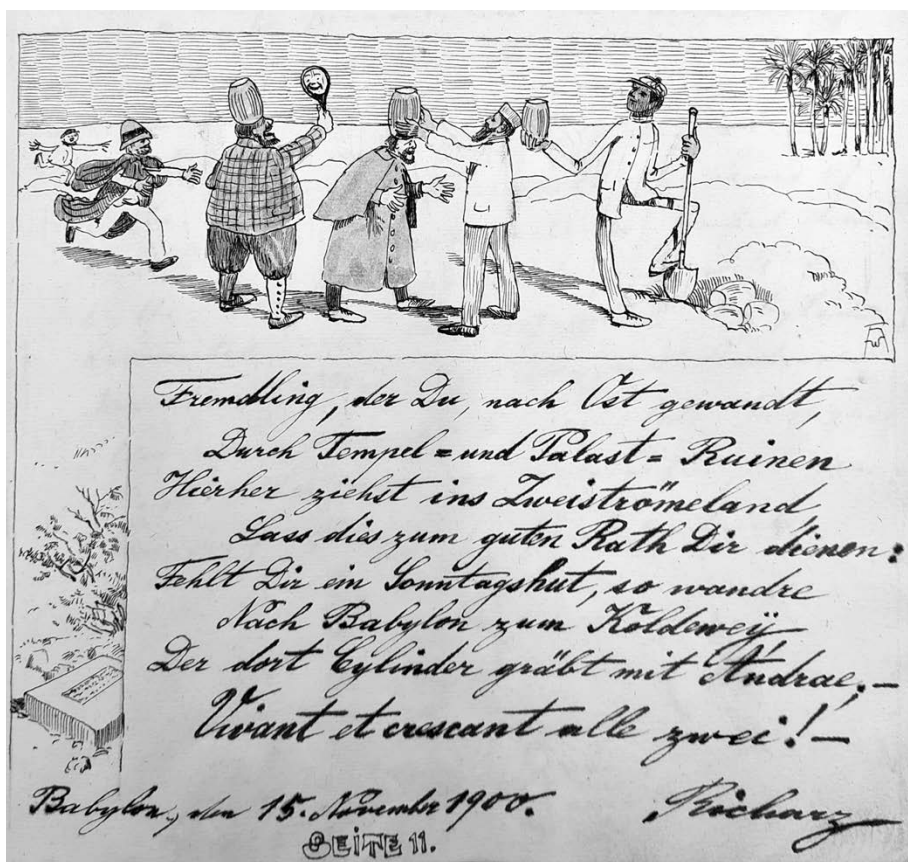 Fremdling, der Du, nach Ost gewandt,
Durch Tempel= und Palast= Ruinen
Hierher ziehst ins Zweiströmeland,
Lass dies zum guten Rath Dir dienen:
Fehlt Dir ein Sonntagshut, so wandre
Nach Babylon zum Koldeweÿ,
Der dort Cylinder gräbt mit Andrae; —
Vivant et crescant alle zwei! —
Babylon, den 15. November 1900.
Richarz
SEITE 11.